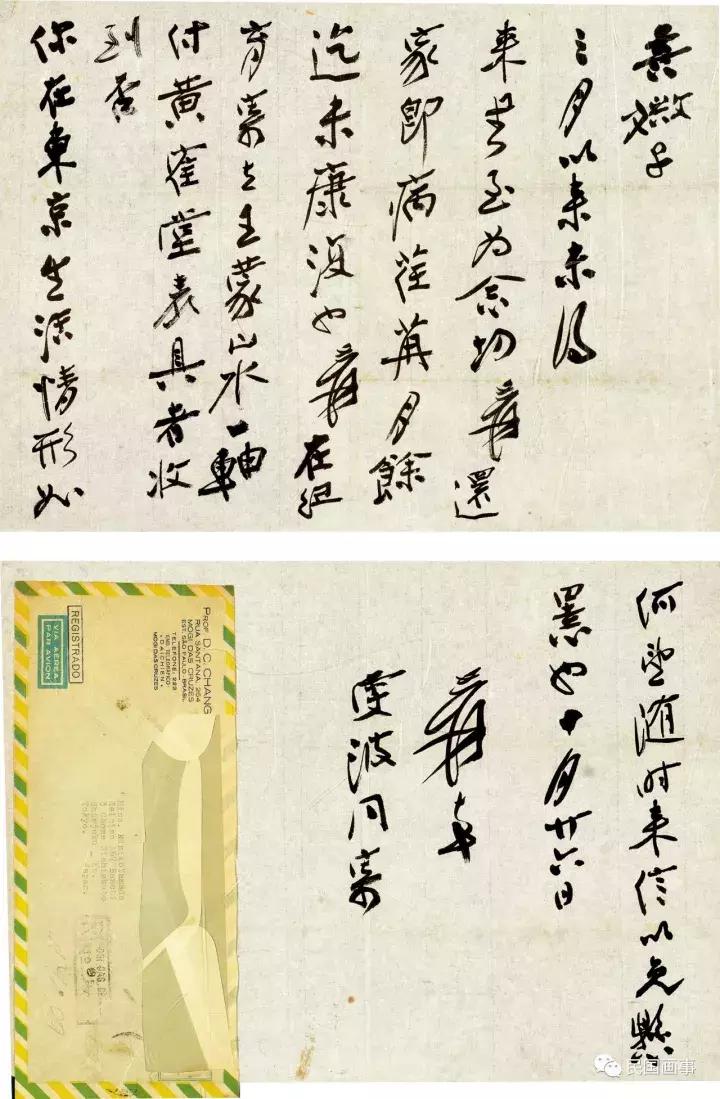 喜媺子
三月以来未得
来书至为念切爰還
家即病荏苒月餘
迄未康復也爰在紐
育寄上王蒙山水一軸
付黄窪堂表具者收
到否
你在東京生活情形如
何望随时来信以免懸
罣也十月廿六日
爰
雯波同寄
PROF. D. C. CHANG
RUA SANTANA, 254
MOGI DAS CRUZES
EST. SÃO PAULO - BRASIL
TELEFONE, 223
MOGI DAS CRUZES
REGISTRADO
VIA AEREA
PAR AVION
Tokyo. Japan.
民国画事